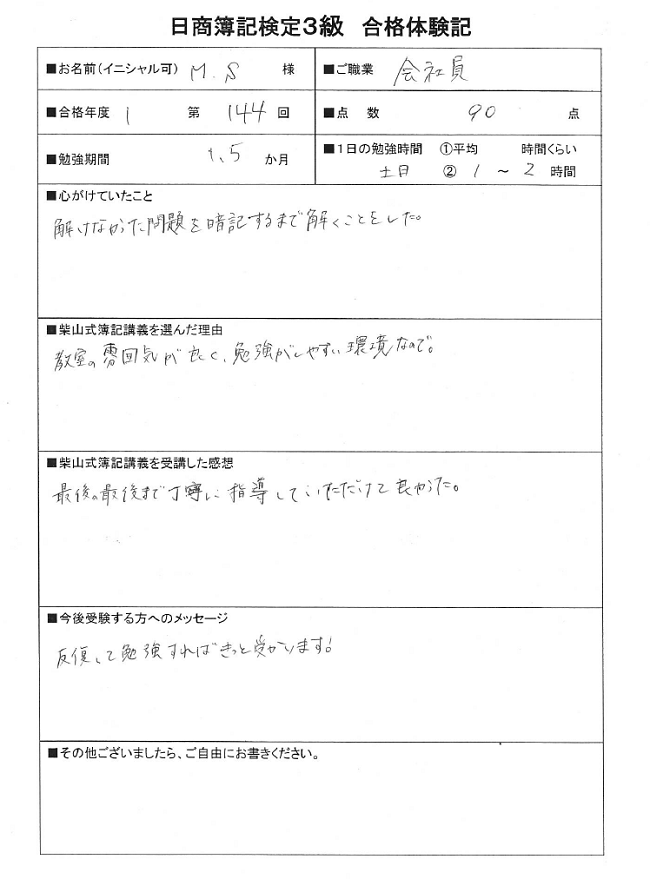 日商簿記検定3級 合格体験記
■お名前(イニシャル可) M.S 様
■ご職業 会社員
■合格年度 1 第 144 回
■点 数 90 点
■勉強期間 1.5 か月
■1日の勉強時間 ①平均 時間くらい
土日 ② 1 ～ 2 時間
■心がけていたこと
解けなかった問題を暗記するまで解くことをした。
■柴山式簿記講義を選んだ理由
教室の雰囲気が良く、勉強がしやすい環境なので。
■柴山式簿記講義を受講した感想
最後の最後まで丁寧に指導していただけて良かった。
■今後受験する方へのメッセージ
反復して勉強すればきっと受かります!
■その他ございましたら、ご自由にお書きください。